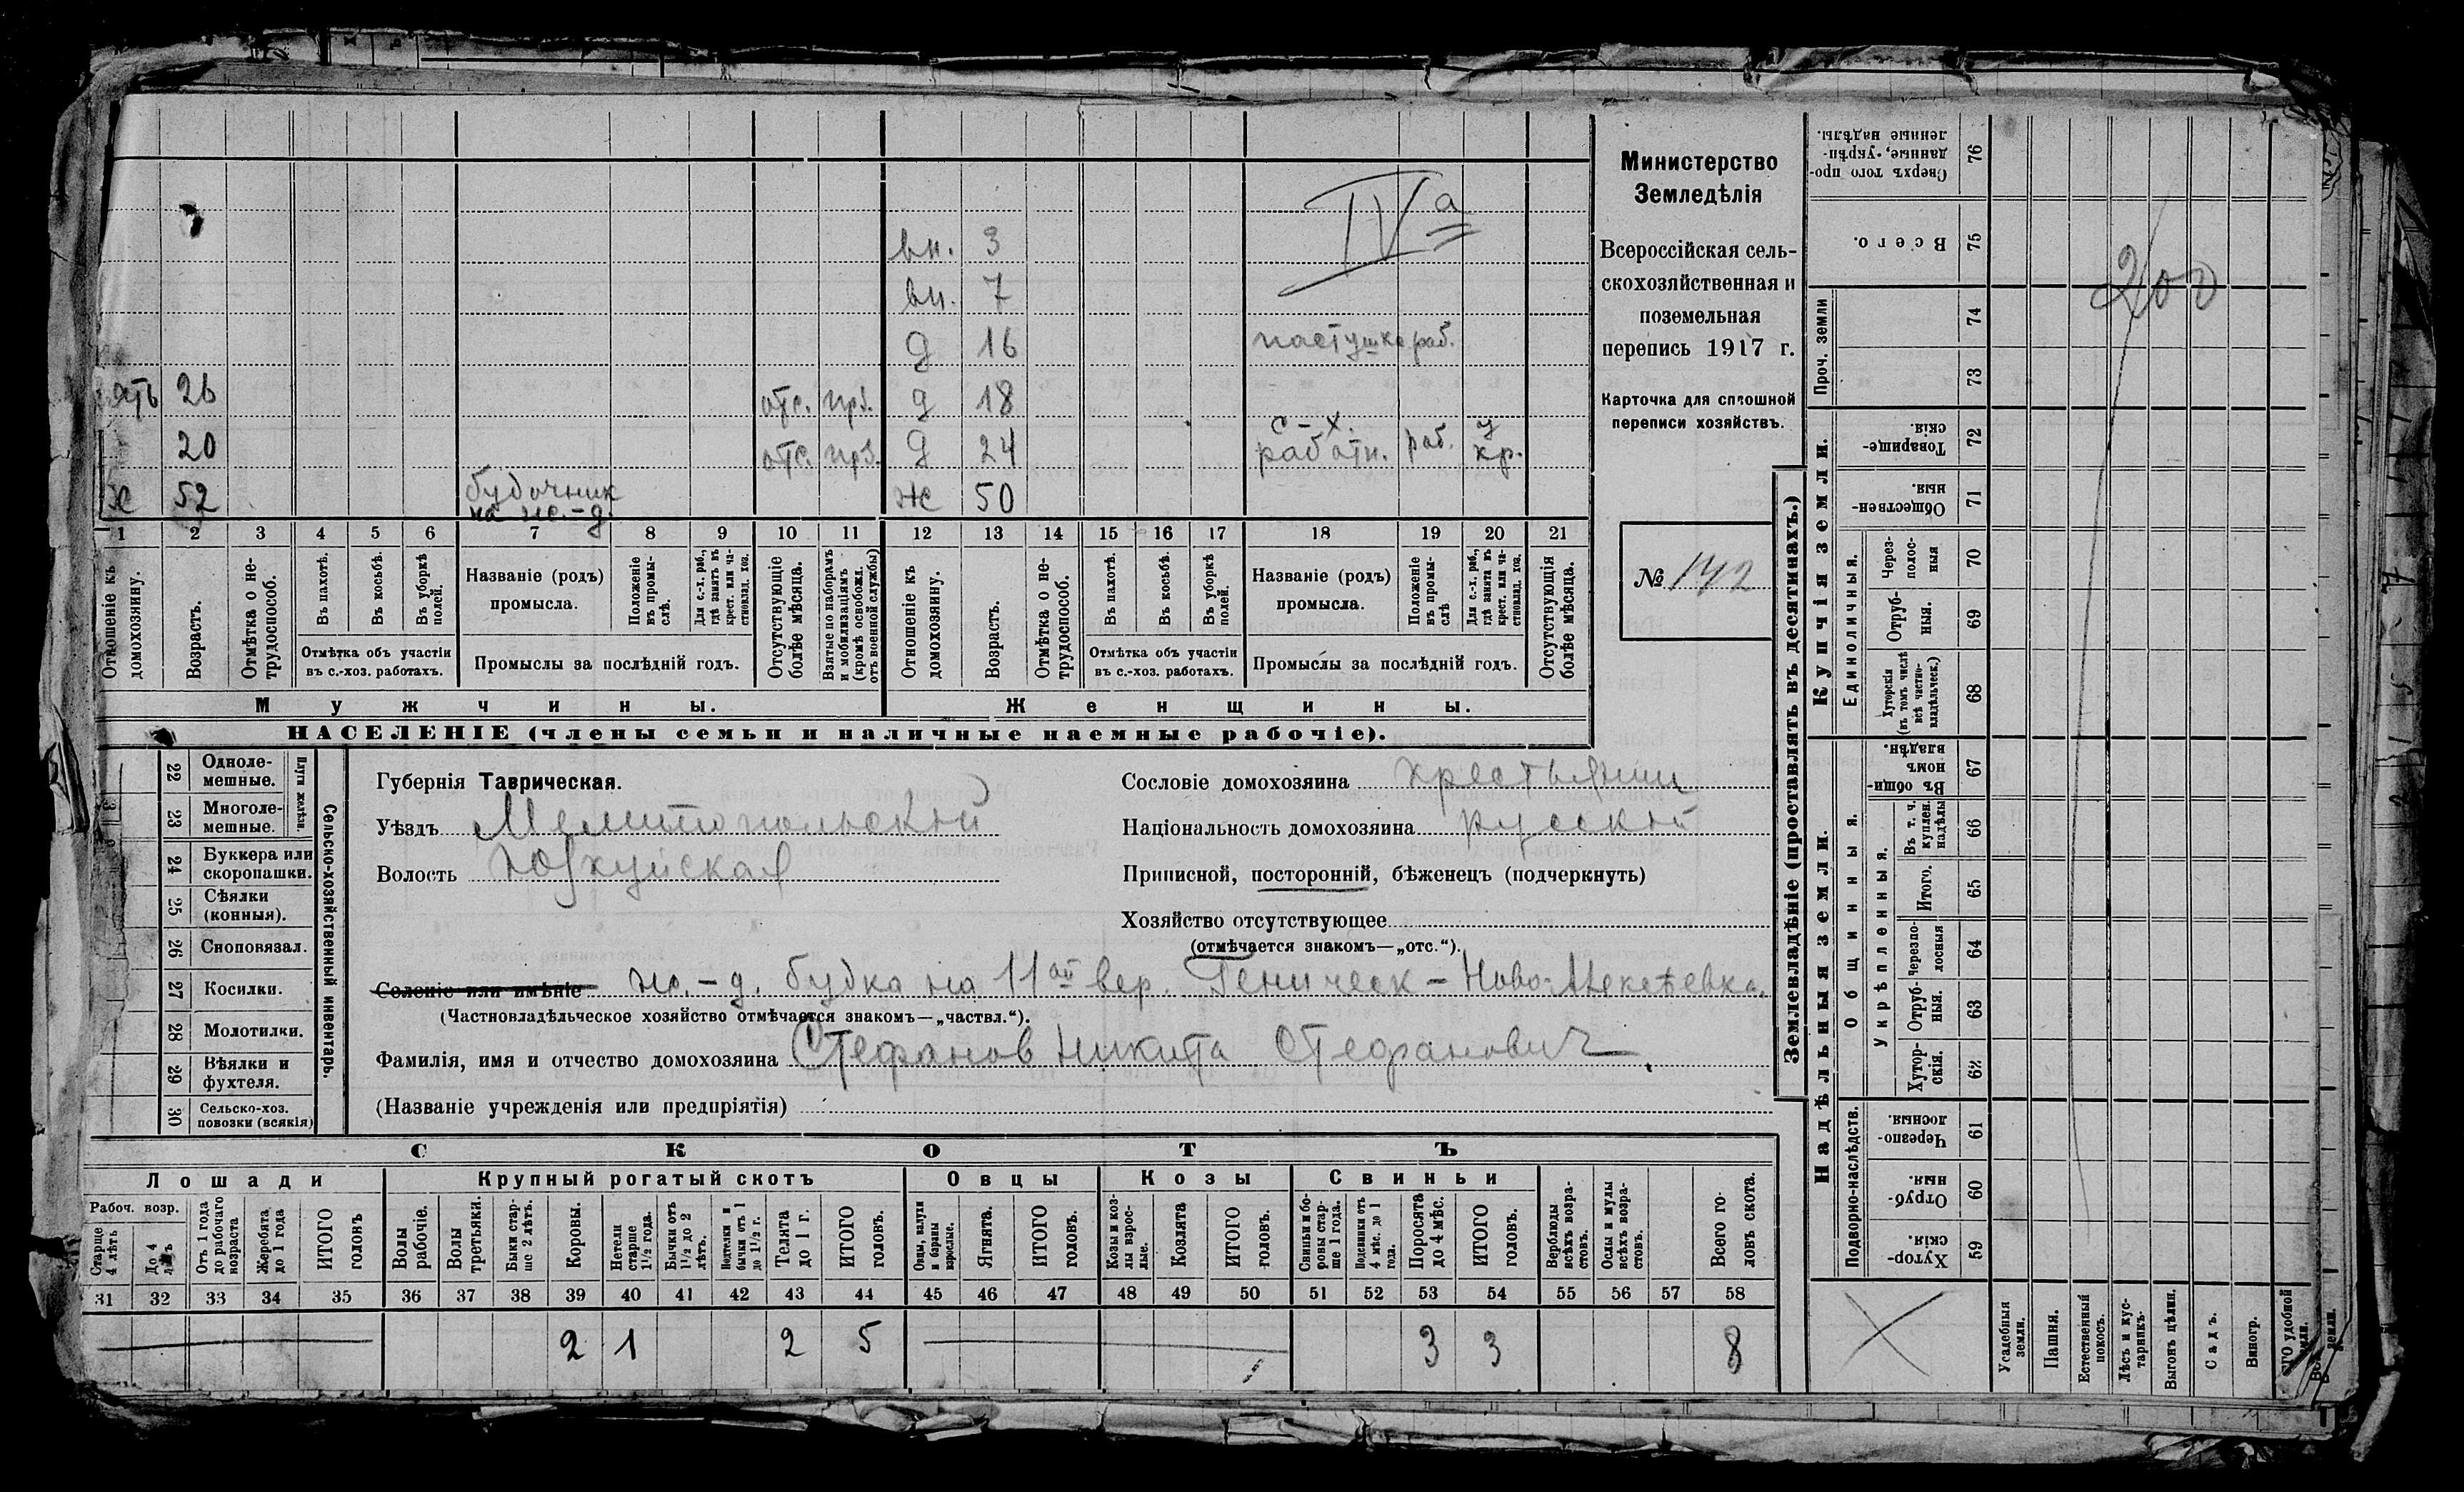 вн. 3
вн. 7
IVа
д 16 пастушка раб.
зять 26 отс. прз. д 18
20 отс. прз. д 24 с-х. работн. раб. у кр.
х 52 будочник на ж.-д. ж 50
1 2 3 4 5 6 7 8 9 10 11 12 13 14 15 16 17 18 19 20 21
Отношеніе къ домохозяину.
Возрастъ.
Отмѣтка о нетрудоспособ.
Въ пахотѣ.
Въ косьбѣ.
Въ уборкѣ полей.
Отмѣтка объ участіи
въ с.-хоз. работахъ.
Названіе (родъ)
промысла.
Положеніе въ промыслѣ.
Для с.-х. раб., гдѣ занятъ въ крест. или частновлад. хоз.
Промыслы за послѣдній годъ.
Отсутствующіе болѣе мѣсяца.
Взятые по наборамъ и мобилизаціямъ (кромѣ освобожд. отъ военной службы)
Отношеніе къ домохозяину.
Возрастъ.
Отмѣтка о нетрудоспособ.
Въ пахотѣ.
Въ косьбѣ.
Въ уборкѣ полей.
Отмѣтка объ участіи
въ с.-хоз. работахъ.
Названіе (родъ)
промысла.
Положеніе въ промыслѣ
Для с.-х. раб., гдѣ занята въ крест. или частновлад. хоз.
Промыслы за послѣдній годъ.
Отсутствующія болѣе мѣсяца.
Мужчины.
Женщины.
НАСЕЛЕНІЕ (члены семьи и наличные наемные рабочіе).
Министерство
Земледѣлія
Всероссійская сель-
скохозяйственная и
поземельная
перепись 1917 г.
Карточка для сплошной
переписи хозяйствъ.
№ 142
22 Одноле-
мешные.
23 Многоле-
мешные.
Плуги желѣзн.
24 Буккера или
скоропашки.
25 Сѣялки
(конныя).
26 Сноповязал.
27 Косилки.
28 Молотилки.
29 Вѣялки и
фухтеля.
30 Сельско-хоз.
повозки (всякія)
Сельско-хозяйственный инвентарь.
Губернія Таврическая.
Уѣздъ Мелитопольскій
Волость Юзкуйская
Сословіе домохозяина крестьянин
Національность домохозяина русскій
Приписной, посторонній, бѣженецъ (подчеркнуть)
Хозяйство отсутствующее
(отмѣчается знакомъ—„отс.“).
Селеніе или имѣніе ж.-д. будка на 11ой вер. Геническ-Ново-Алексѣевка.
(Частновладѣльческое хозяйство отмѣчается знакомъ—„частвл.“).
Фамилія, имя и отчество домохозяина Стефанов Никита Стефанович.
(Названіе учрежденія или предпріятія)
СКОТЪ
Лошади
Крупный рогатый скотъ
Овцы
Козы
Свиньи
Рабоч. возр.
Старше 4 лѣтъ
До 4 лѣтъ
Отъ 1 года до рабочаго возраста
Жеребята до 1 года
ИТОГО головъ
Волы рабочіе.
Волы третьяки.
Быки старше 2 лѣтъ.
Коровы.
Нетели старше 1½ года.
Бычки отъ 1½ до 2 лѣтъ.
Нетелки и бычки отъ 1 до 1½ г.
Телята до 1 г.
ИТОГО головъ.
Овцы, валухи и бараны взрослые.
Ягнята.
ИТОГО головъ.
Козы и козлы взрослые.
Козлята
ИТОГО головъ.
Свиньи и боровы старше 1 года.
Подсвинки отъ 4 мѣс. до 1 года.
Поросята до 4 мѣс.
ИТОГО головъ.
Верблюды всѣхъ возрастовъ.
Ослы и мулы всѣхъ возрастовъ.
Всего головъ скота.
31 32 33 34 35 36 37 38 39 40 41 42 43 44 45 46 47 48 49 50 51 52 53 54 55 56 57 58
2 1 2 5 3 3 8
Землевладѣніе (проставлять въ десятинахъ.)
Купчія земли.
Надѣльныя земли.
Проч. земли
Единоличныя.
Общинныя.
Укрѣпленныя.
Подворно-наслѣдств.
76 Сверхъ того проданные, укрѣпленные надѣлы.
75 Всего.
200
74
73
72 Товарищескія.
71 Общественныя.
70 Черезполосныя
69 Отрубныя.
68 Хуторскія (въ томъ числѣ всѣ частновладѣльческ.)
67 Въ общинномъ владѣн.
66 Въ т. ч. куплен. надѣлы
65 Итого.
64 Черезполосныя
63 Отрубныя.
62 Хуторскія.
61 Черезполосныя.
60 Отрубныя.
59 Хуторскія.
Усадебныя земли.
Пашня.
Естественный покосъ.
Лѣсъ и кустарникъ
Выгонъ цѣлин.
Садъ.
Виногр.